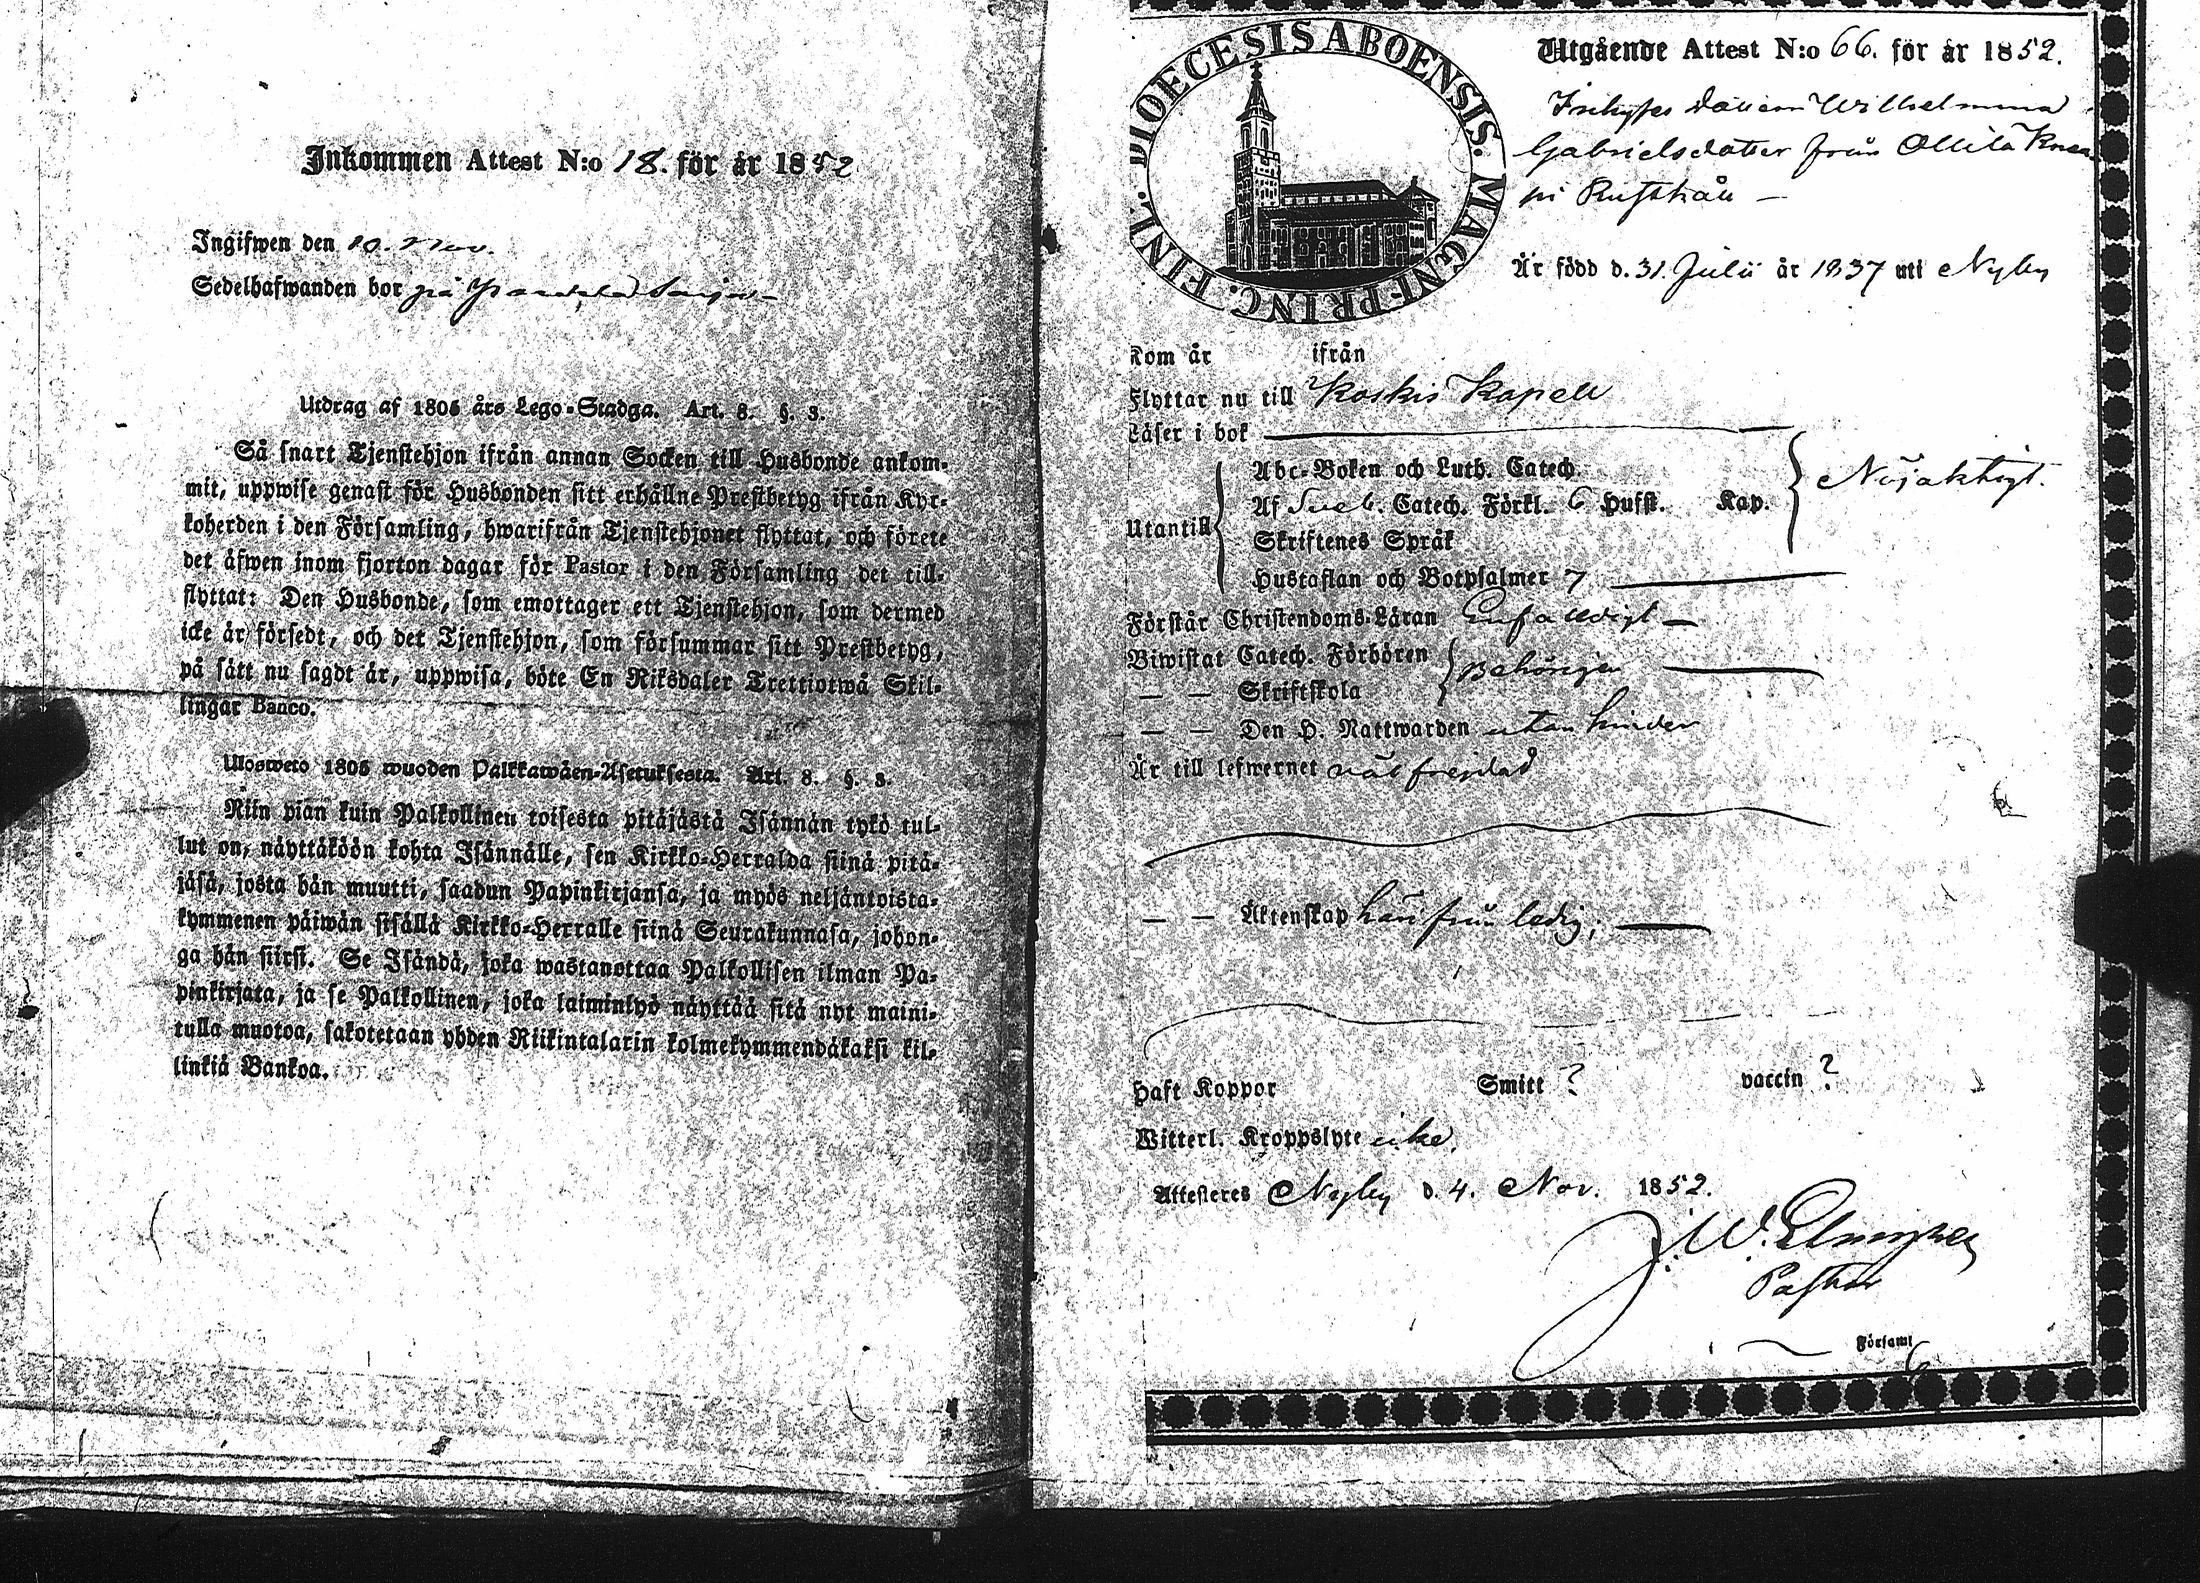 Inkommen Attest N:o 18. för år 1852
Ingifwen den 10. Nov.
Sedelhafwanden bor på
Utdrag af 1805 års Lego-Stadga. Art. 8. §. 3.
Så snart Tjenstehjon ifrån annan Socken till Husbonde ankom-
mit, uppwise genast för Husbonden sitt erhållne Prestbetyg ifrån Kyr-
koherden i den Församling, hwarifrån Tjenstehjonet flyttat, och förete
det äfwen inom fjorton dagar för Pastor i den Församling det till-
flyttat: Den Husbonde, som emottager ett Tjenstehjon, som dermed
icke är försedt, och det Tjenstehjon, som försummar sitt Prestbetyg,
på sätt nu sagdt är, uppwisa, böte En Riksdaler Trettiotwå Skil-
lingar Banco.
Ulosweto 1805 wuoden Palkkawäen-Asetuksesta. Art. 8. §. 3.
Niin pian kuin Palkollinen toisesta pitäjästä Isännän tykö tul-
lut on, näyttäköön kohta Isännälle, sen Kirkko-Herralda siinä pitä-
jäsä, josta hän muutti, saadun Papinkirjansa, ja myös neljäntoista-
kymmenen päiwän sisällä Kirkko-Herralle siinä Seurakunnasa, johon-
ga hän siirsi. Se Isändä, joka wastanottaa Palkollisen ilman Pa-
pinkirjata, ja se Palkollinen, joka laiminlyö näyttää sitä nyt maini-
tulla muotoa, sakotetaan yhden Riikintalarin kolmekymmendäkaksi kil-
linkiä Bankoa.
DIOECESIS ABOENSIS. MAGNI PRINC. FINL.
Utgående Attest N:o 66. för år 1852.
Inhyses Dottern Wilhelmina
Gabrielsdotter från Ollila
Är född d. 31. Julii år 1837 uti Nyby
Kom år ifrån
Flyttar nu till Koskis Kapell
Läser i bok
Abc-Boken och Luth. Catech.
Utantill
Af Sveb. Catech. Förkl. 6 Hufst. Kap.
Nöjaktigt.
Skriftenes Språk
Hustaflan och Botpsalmer 7
Förstår Christendoms-Läran Enfalldigt
Biwistat Catech. Förhören
Behörigen
— — Skriftskola
— — Den H. Nattwarden utan hinder
Är till lefwernet väl frejdad
— — Äktenskap härifrån ledig;
Haft Koppor Smitt ? vaccin ?
Witterl. Kroppslyte icke.
Attesteres Nyby d. 4. Nov. 1852.
J. W.
Pastor
Församl